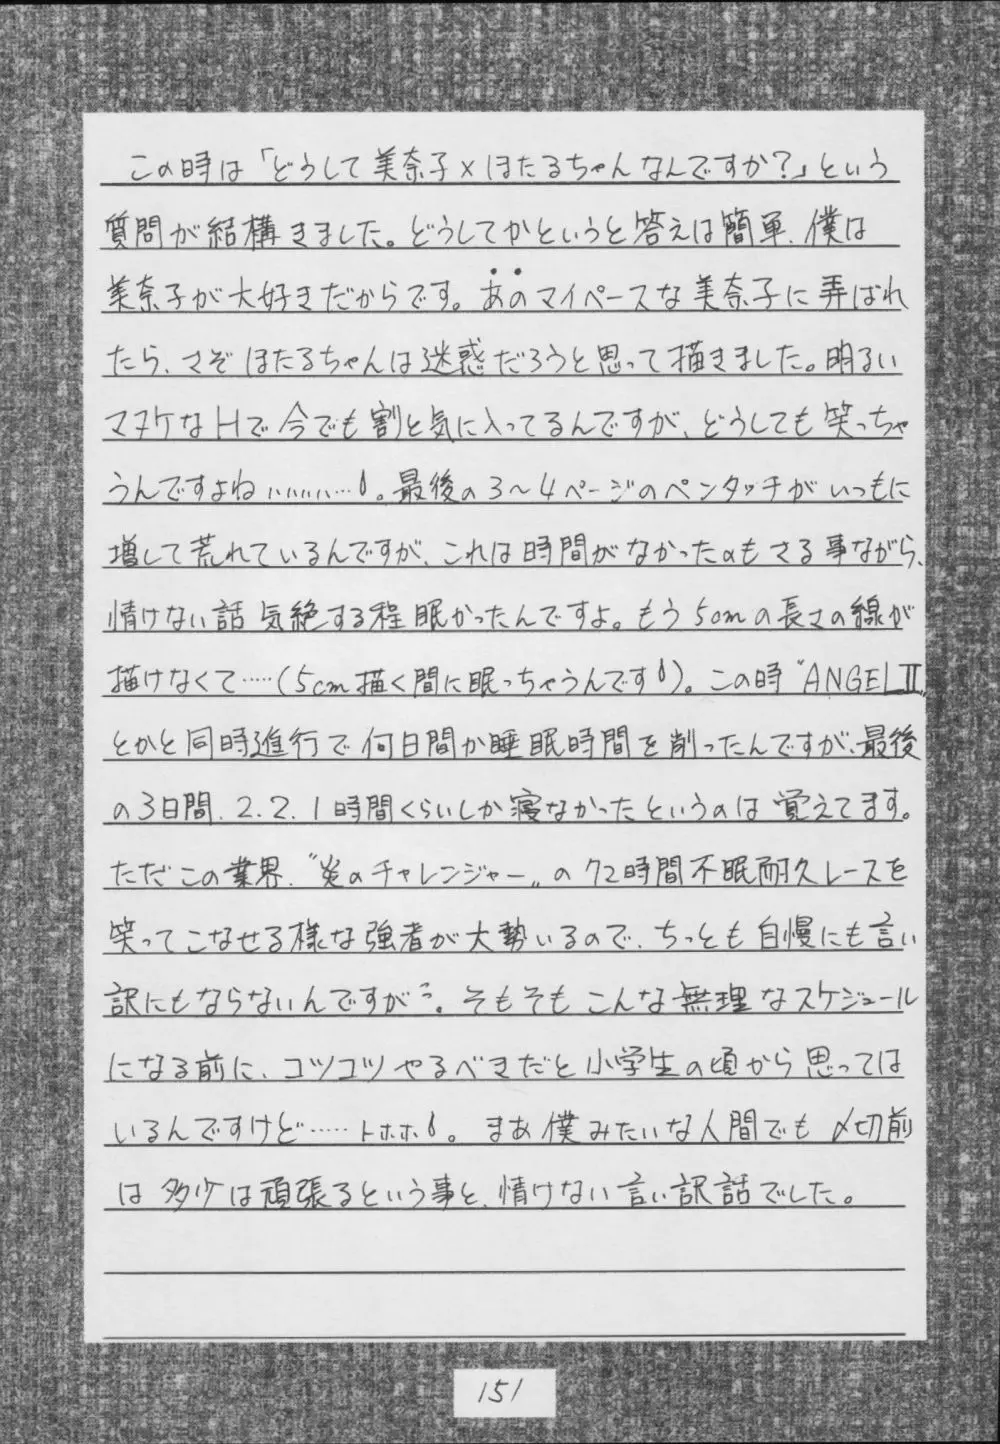 この時は「どうして美奈子×ほたるちゃんなんですか?」という
質問が結構きました。どうしてかというと答えは簡単、僕は
美奈子が大好きだからです。あのマイペースな美奈子に弄ばれ
たら、さぞほたるちゃんは迷惑だろうと思って描きました。明るい
マヌケなHで今でも割と気に入ってるんですが、どうしても笑っちゃ
うんですよね……。最後の3～4ページのペンタッチがいつもに
増して荒れているんですが、これは時間がなかったのもさる事ながら、
情けない話気絶する程眠かったんですよ。もう5cmの長さの線が
描けなくて……(5cm描く間に眠っちゃうんです)。この時〝ANGELⅡ〟
とかと同時進行で何日間か睡眠時間を削ったんですが、最後
の3日間、2、2、1時間くらいしか寝なかったというのは覚えてます。
ただこの業界、〝炎のチャレンジャー〟の72時間不眠耐久レースを
笑ってこなせる様な強者が大勢いるので、ちっとも自慢にも言い
訳にもならないんですが。そもそもこんな無理なスケジュール
になる前に、コツコツやるべきだと小学生の頃から思っては
いるんですけど……トホホ。まあ僕みたいな人間でも〆切前
は多少は頑張るという事と、情けない言い訳話でした。
151